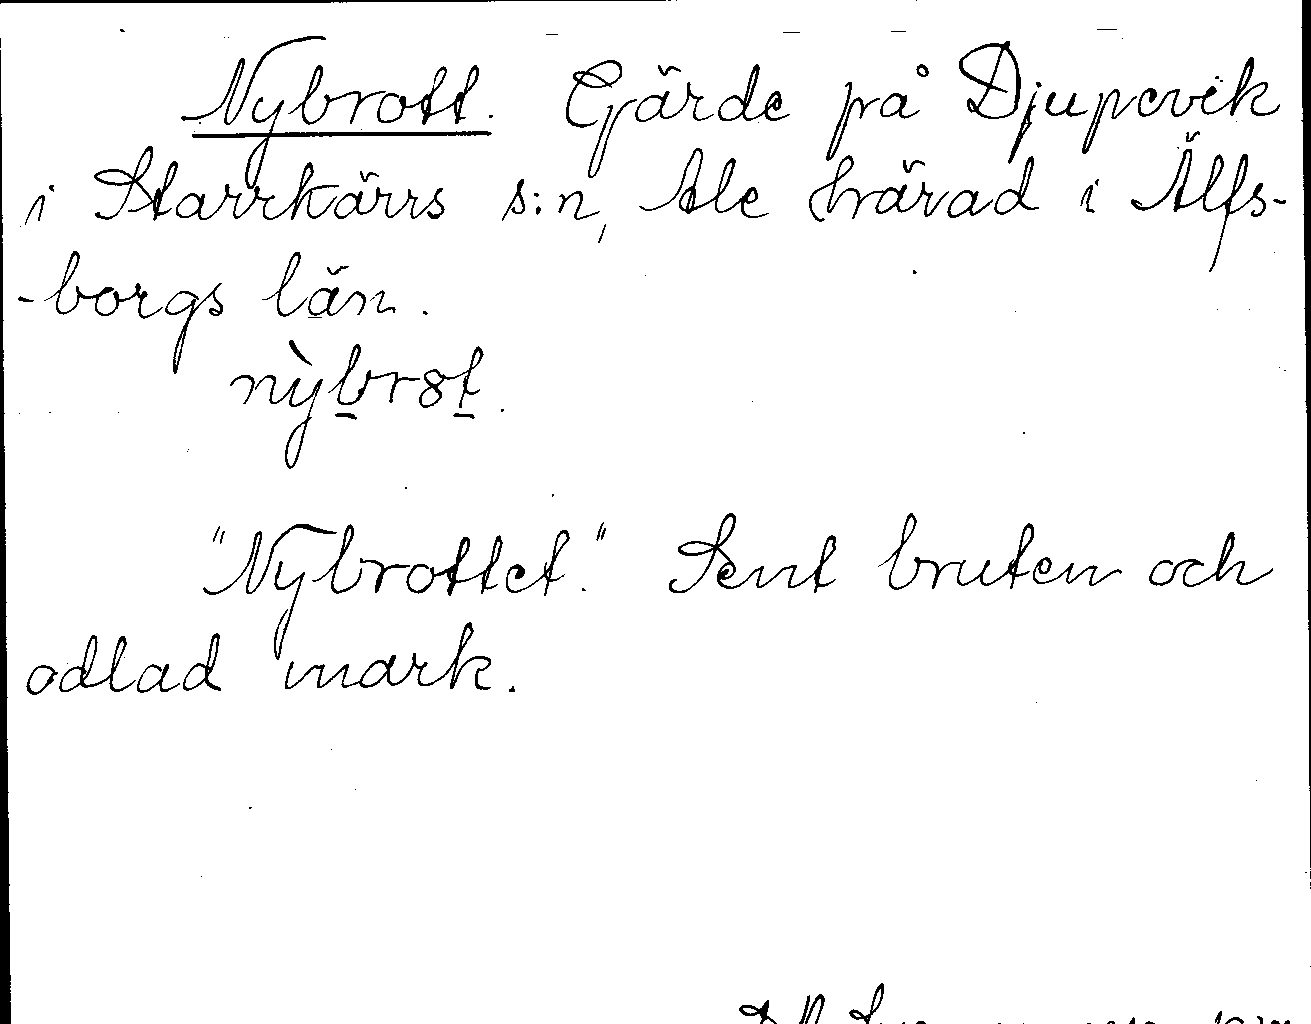 Nybrott. Gärde på Djupevik
i Starrkärrs s:n, Ale härad i Älfs-
-borgs län.
nỳbrȣt.
"Nybrottet." Sent bruten och
odlad mark.